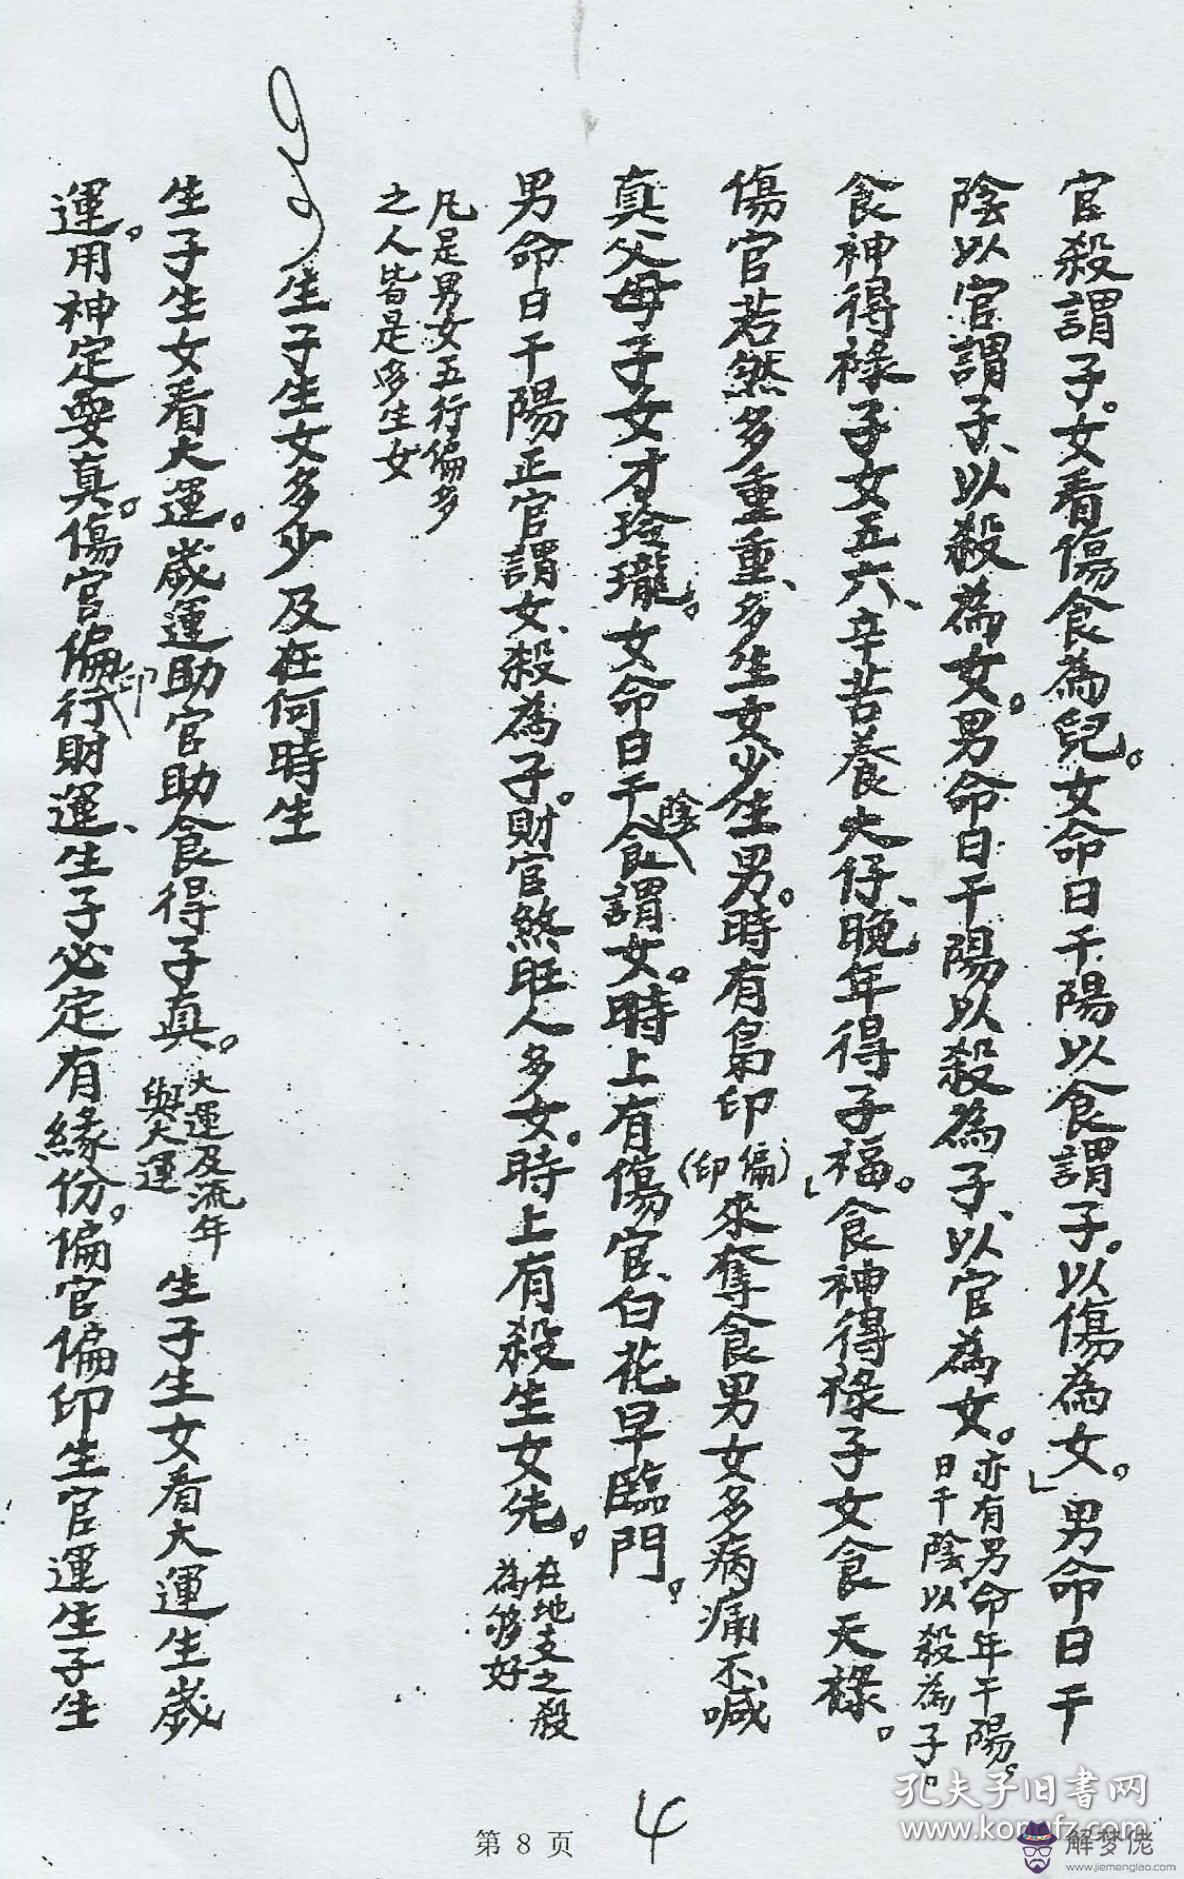 官殺謂子。女看傷食為兒。女命日干陽以食謂子。以傷為女。」男命日干
陰以官謂子、以殺為女。男命日干陽以殺為子、以官為女。亦有男命年干陽。
日干陰以殺為子。
食神得祿子女五六、辛苦養大仔、晚年得子福。」食神得祿子女食天祿。
傷官若然多重重、多生女少生男。時有梟印(偏印)來奪食男女多病痛不喊
真父母子女才玲瓏。女命日干陰食謂女。時上有傷官、白花早臨門。
男命日干陽正官謂女、殺為子。財官煞旺人多女。時上有殺生女先。在地支之殺
為够好
凡是男女五行偏多
之人皆是多生女
生子生女多少及在何時生
生子生女看大運。歲運助官助食得子真。大運及流年
與大運
生子生女看大運生歲
運。用神定要真。傷官偏印行財運、生子必定有緣份。偏官偏印生官運生子生
第 8 页
4
孔夫子旧书网
www.kongfz.com
解梦佬
www.jiemenglao.com